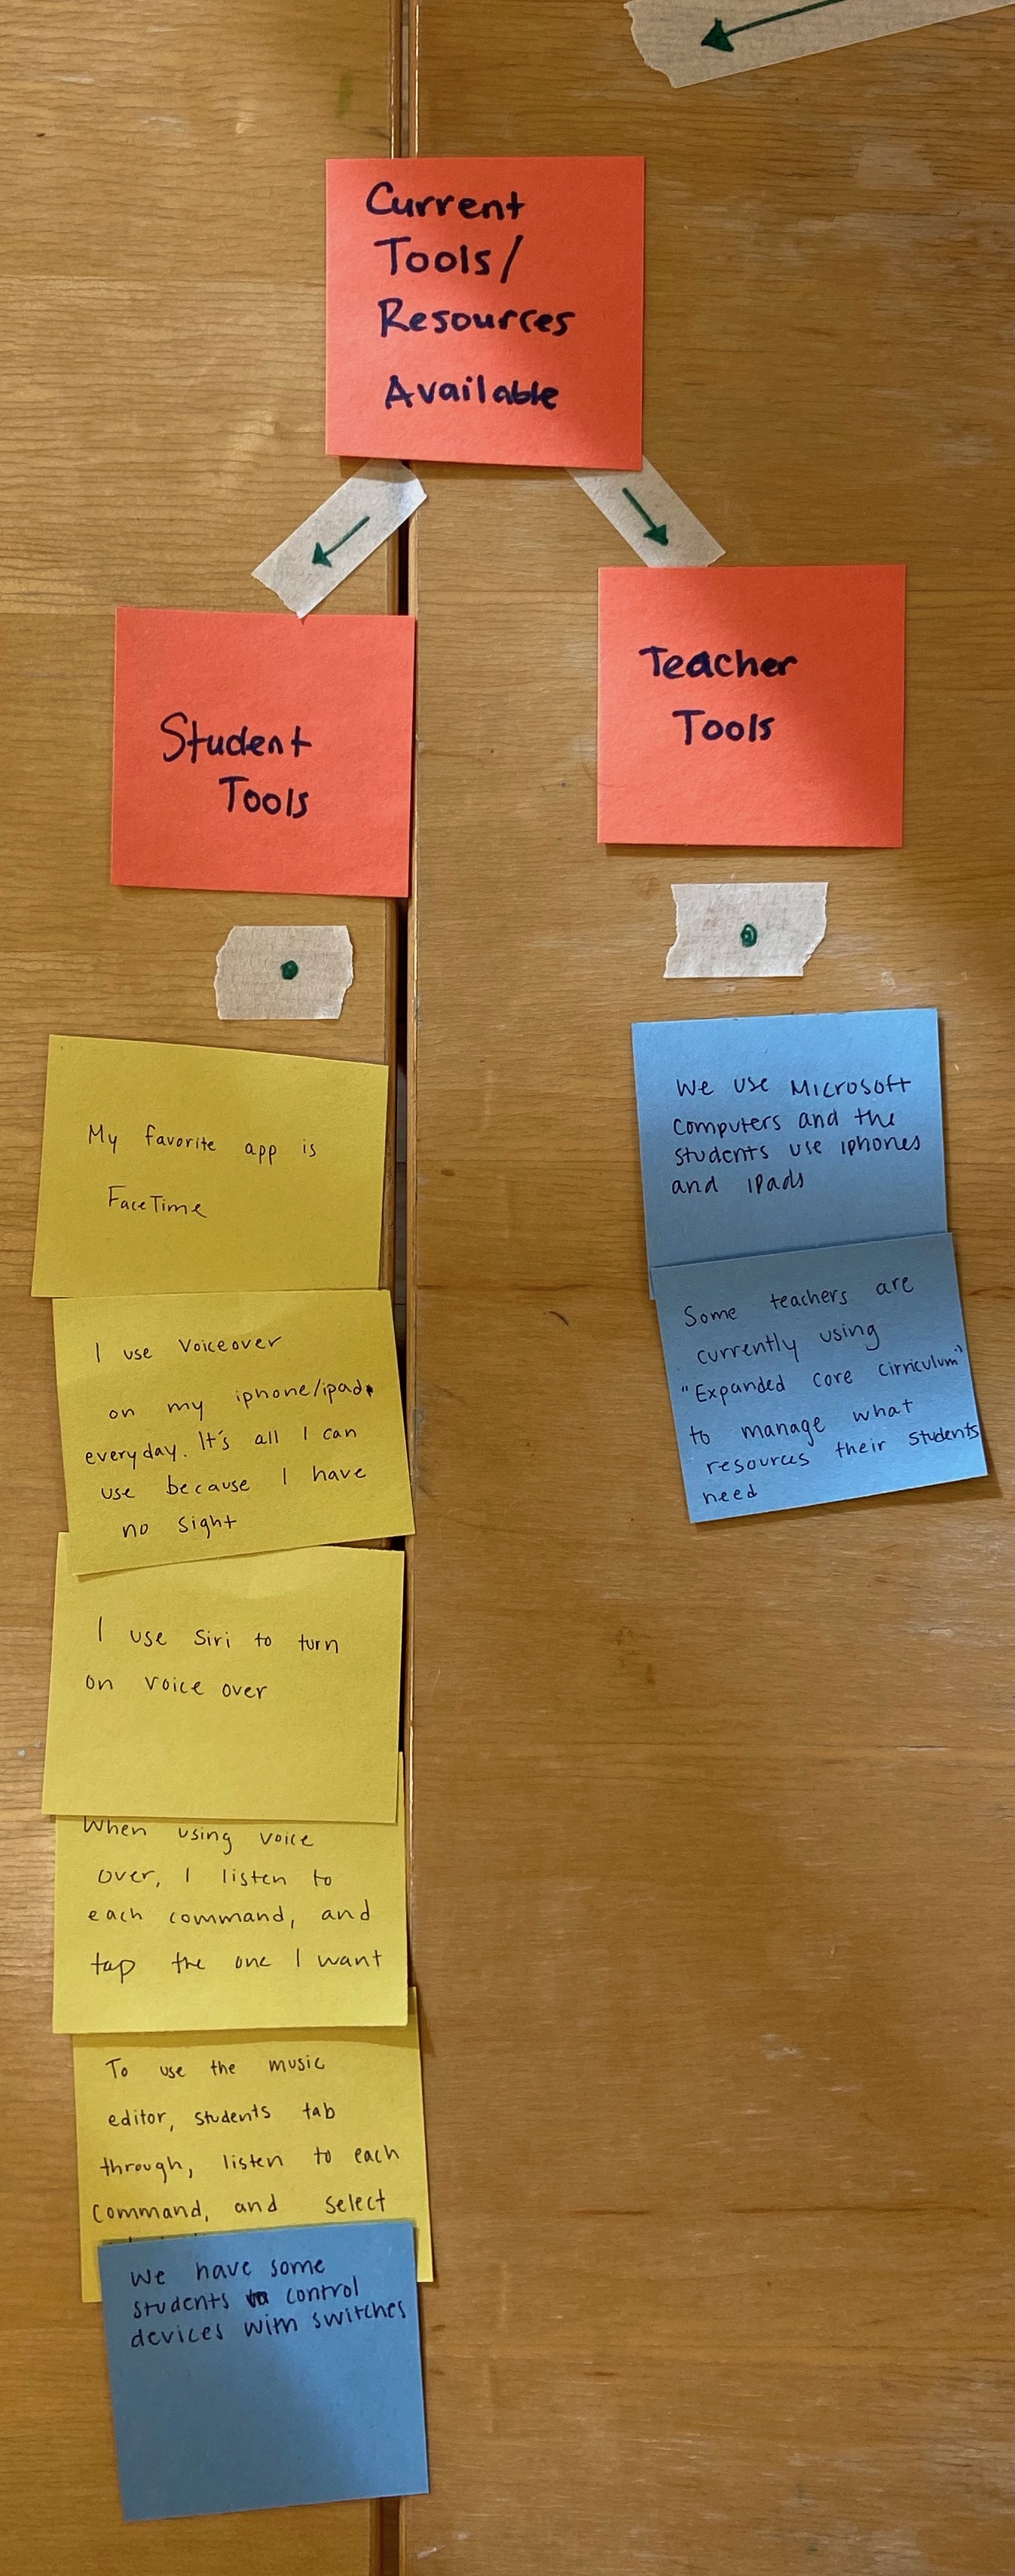 Current
Tools/
Resources
Available
Student
Tools
My favorite app is
FaceTime
I use Voiceover
on my iphone/ipad
everyday. It's all I can
use because I have
no sight
I use Siri to turn
on voice over
When using voice
over, I listen to
each command, and
tap the one I want
To use the music
editor, students tab
through, listen to each
command, and select
We have some
students control
devices with switches
Teacher
Tools
We use Microsoft
computers and the
students use iphones
and ipads
Some teachers are
currently using
"Expanded core cirriculum"
to manage what
resources their students
need